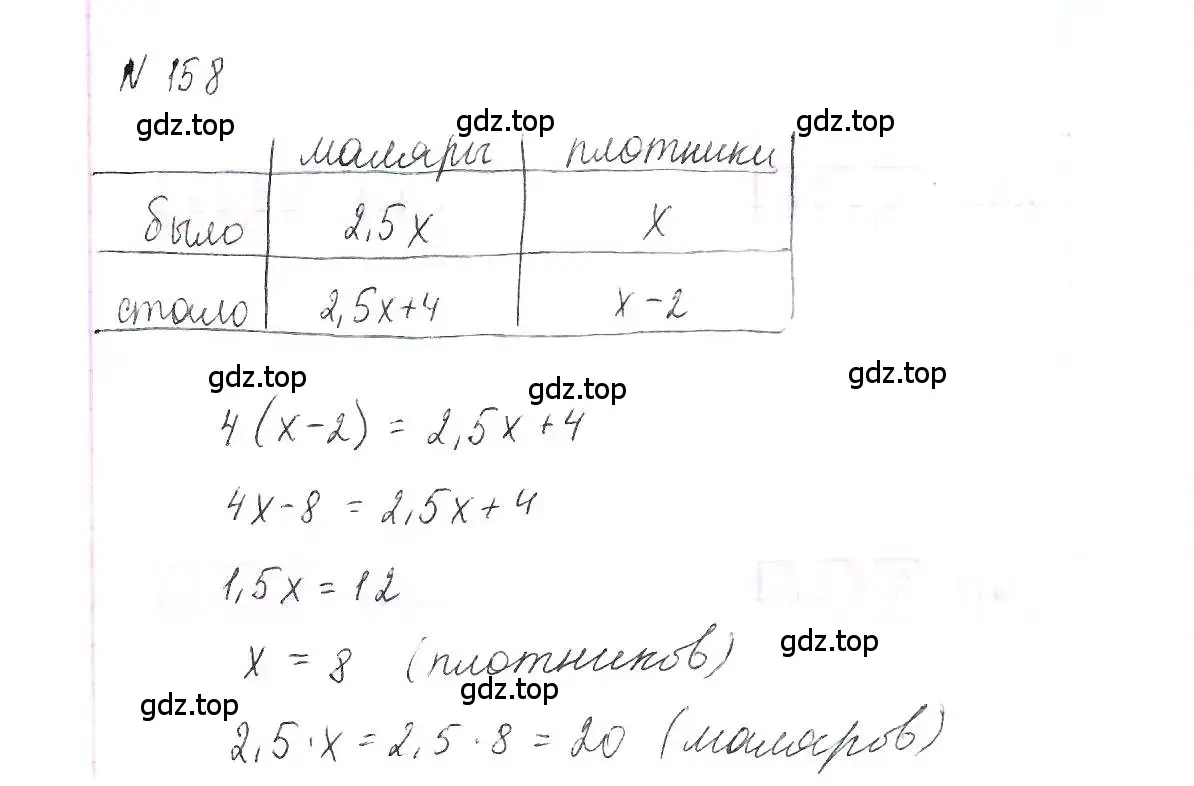 N 158
gdz.top gdz.top gdz.top
маляры плотники
было 2,5x x
стало 2,5x+4 x-2
gdz.top gdz.top gdz.top
4(x-2) = 2,5x+4
4x-8 = 2,5x+4
1,5x = 12
gdz.top
x = 8 (плотников)
gdz.top gdz.top
2,5·x = 2,5·8 = 20 (маляров)